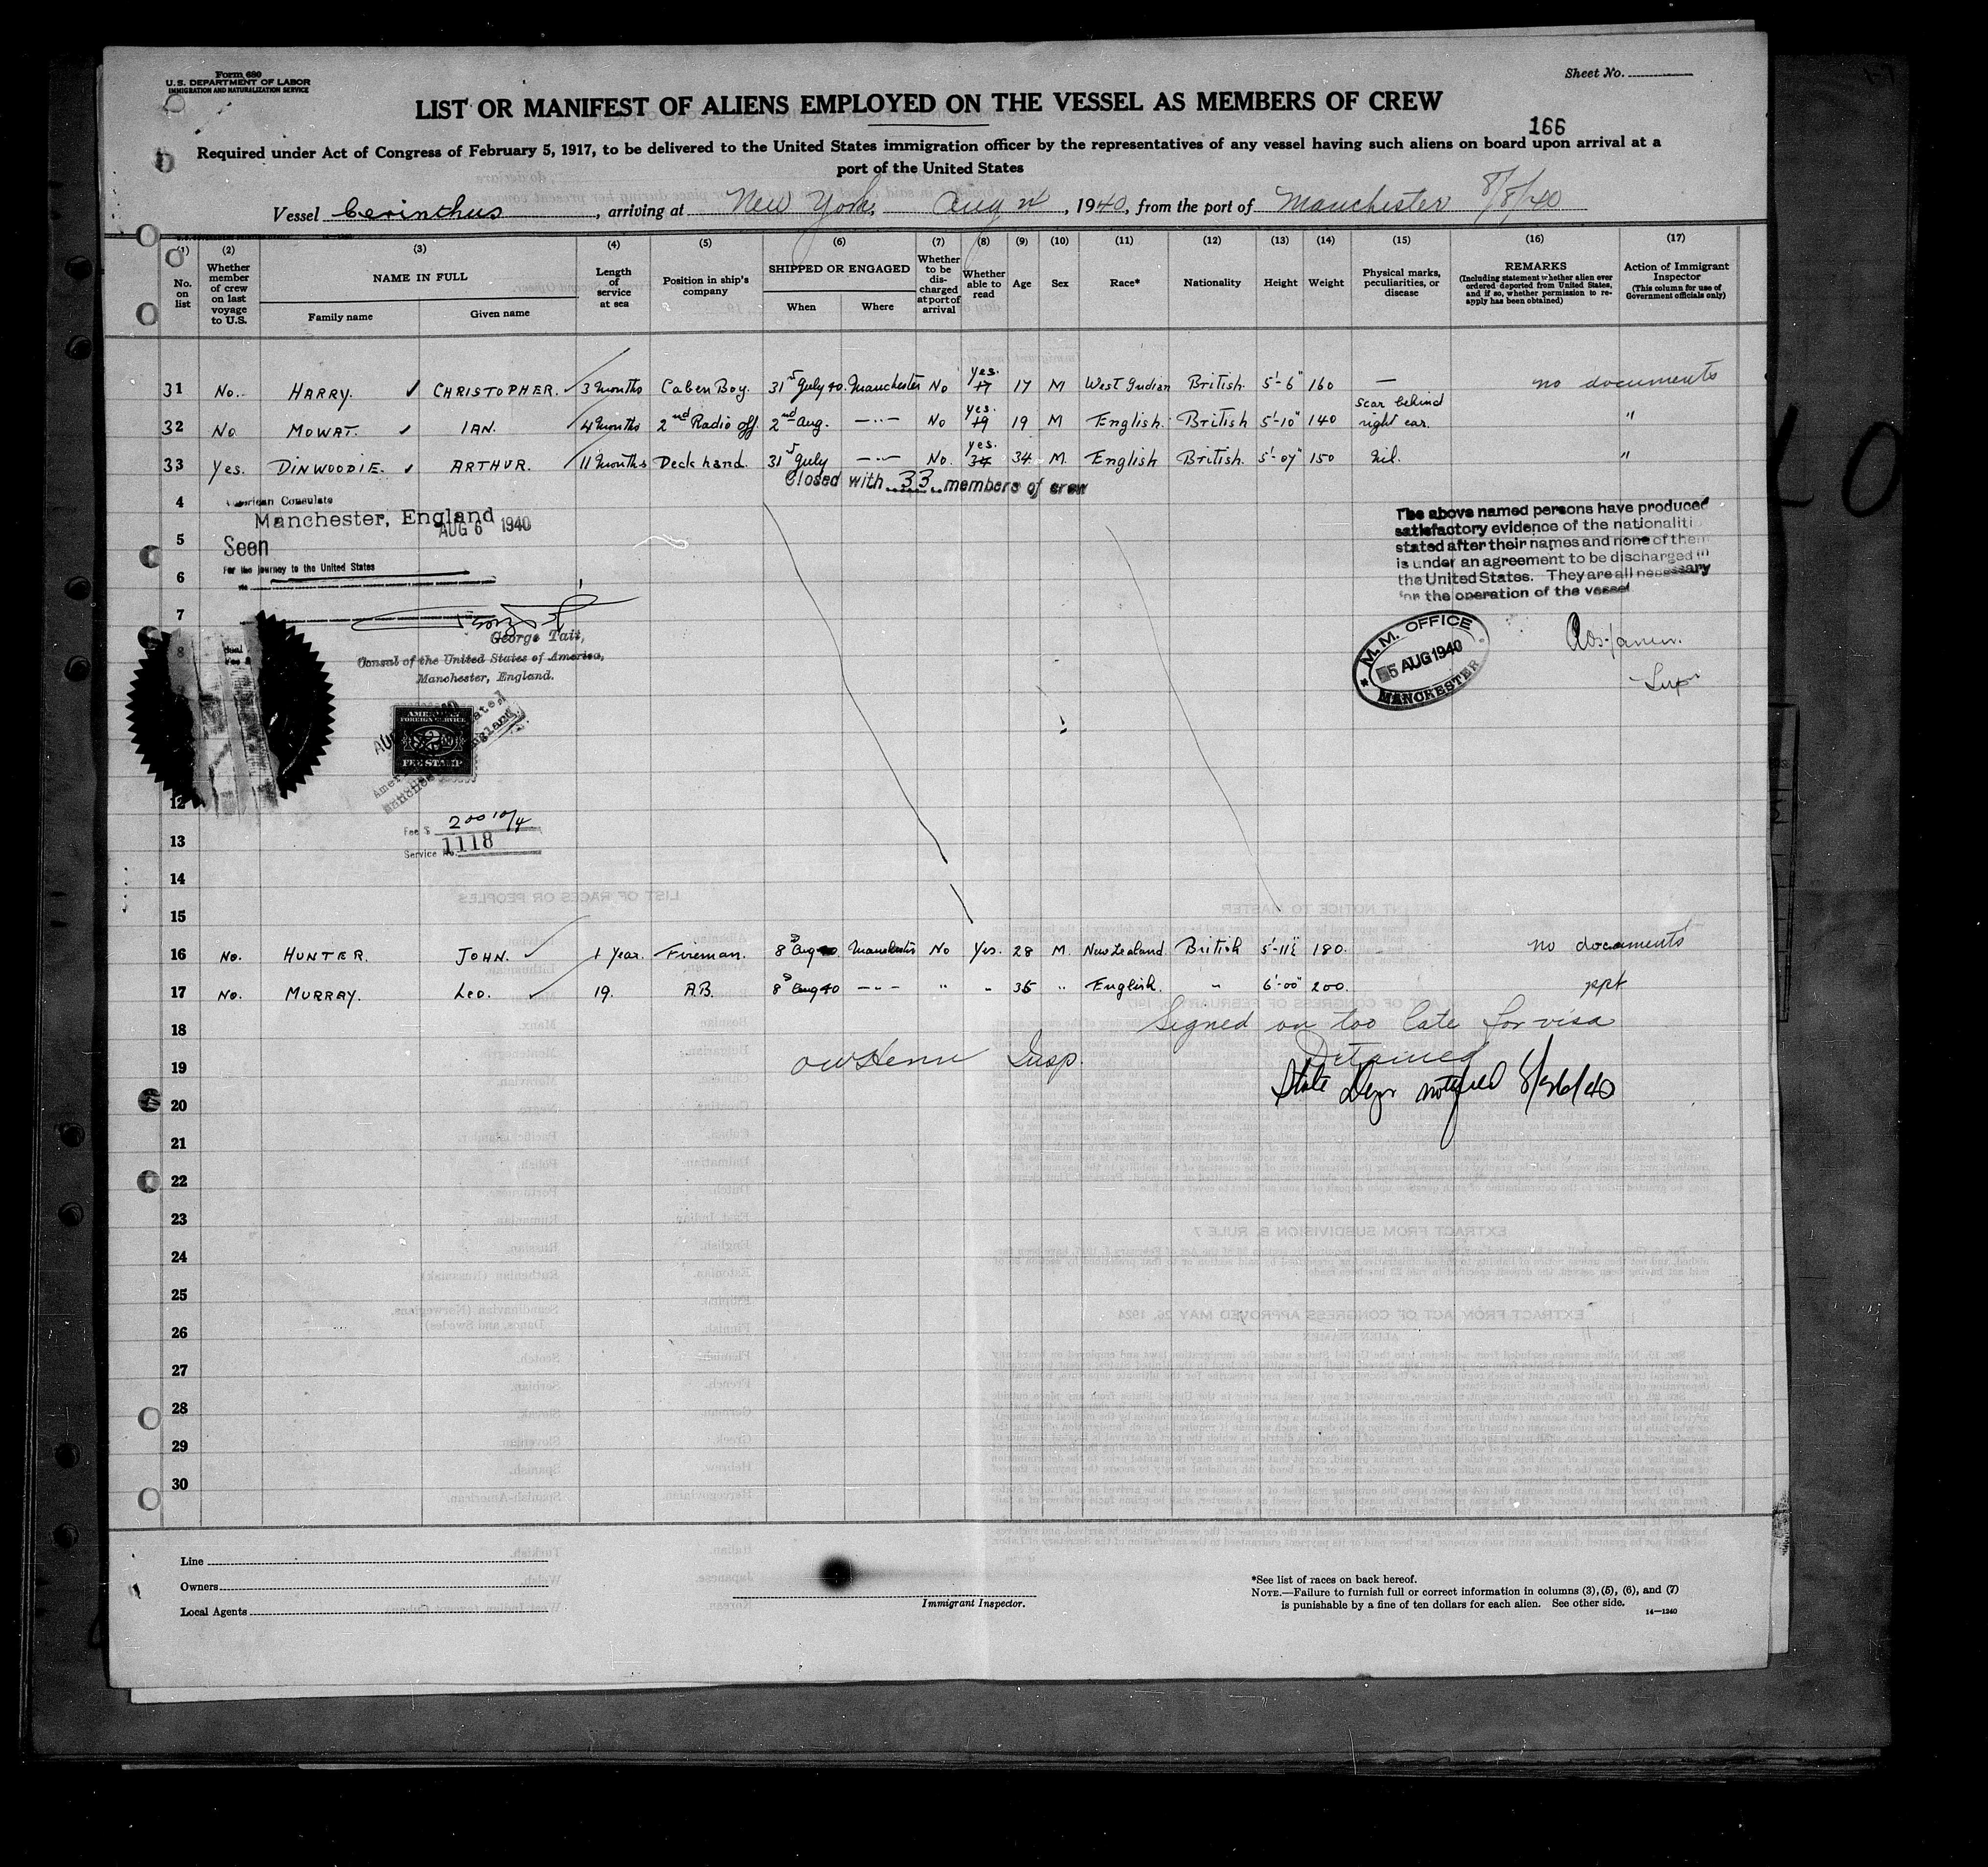 Form 680
U.S. DEPARTMENT OF LABOR
IMMIGRATION AND NATURALIZATION SERVICE
Sheet No.
LIST OR MANIFEST OF ALIENS EMPLOYED ON THE VESSEL AS MEMBERS OF CREW
166
Required under Act of Congress of February 5, 1917, to be delivered to the United States immigration officer by the representatives of any vessel having such aliens on board upon arrival at a
port of the United States
Vessel Cerinthus, arriving at New York, Aug 24, 1940, from the port of Manchester 8/8/40
(1) (2) (3) (4) (5) (6) (7) (8) (9) (10) (11) (12) (13) (14) (15) (16) (17)
No. on list
Whether member of crew on last voyage to U.S.
NAME IN FULL
Family name
Given name
Length of service at sea
Position in ship's company
SHIPPED OR ENGAGED
When
Where
Whether to be discharged at port of arrival
Whether able to read
Age
Sex
Race*
Nationality
Height
Weight
Physical marks, peculiarities, or disease
REMARKS
(Including statement whether alien ever ordered deported from United States, and if so, whether permission to reapply has been obtained)
Action of Immigrant Inspector
(This column for use of Government officials only)
31 No. HARRY. CHRISTOPHER. 3 months Caben Boy. 31 July 40. Manchester No yes. 17 17 M West Indian British. 5'-6" 160 — no documents
32 No MOWAT. IAN. 4 months 2nd Radio off 2nd Aug. —·— No yes. 19 19 M English. British 5'-10" 140 scar behind right ear. "
33 Yes. DINWOODIE. ARTHUR. 11 months Deck hand. 31 July —·— No. yes. 34 34 M. English British. 5'-07" 150 Nil. "
Closed with 33 members of crew
4
American Consulate
Manchester, England
AUG 6 1940
5
Seen
For the journey to the United States
6
7
The above named persons have produced
satisfactory evidence of the nationaliti
stated after their names and none of them
is under an agreement to be discharged in
the United States. They are all necessary
for the operation of the vessel
George Tait,
Consul of the United States of America,
Manchester, England.
8
M. M. OFFICE
5 AUG 1940
MANCHESTER
AMERICAN
FOREIGN SERVICE
FEE STAMP
12
Fee $ 200 10/4
13
Service No. 1118
14
15
16 No. HUNTER. JOHN. 1 Year. Fireman. 8 Aug 40 Manchester No Yes. 28 M. New Zealand. British 5'-11½ 180. no documents
17 No. MURRAY. Leo. 19. A.B. 8 Aug 40 —·— " " 35 " English. " 6'-00" 200. ppt
18 Signed on too late for visa
19 Insp. Detained
State Dept notified 8/26/40
20
21
22
23
24
25
26
27
28
29
30
Line
Owners
Local Agents
Immigrant Inspector.
*See list of races on back hereof.
NOTE.—Failure to furnish full or correct information in columns (3), (5), (6), and (7)
is punishable by a fine of ten dollars for each alien. See other side.
14—1240